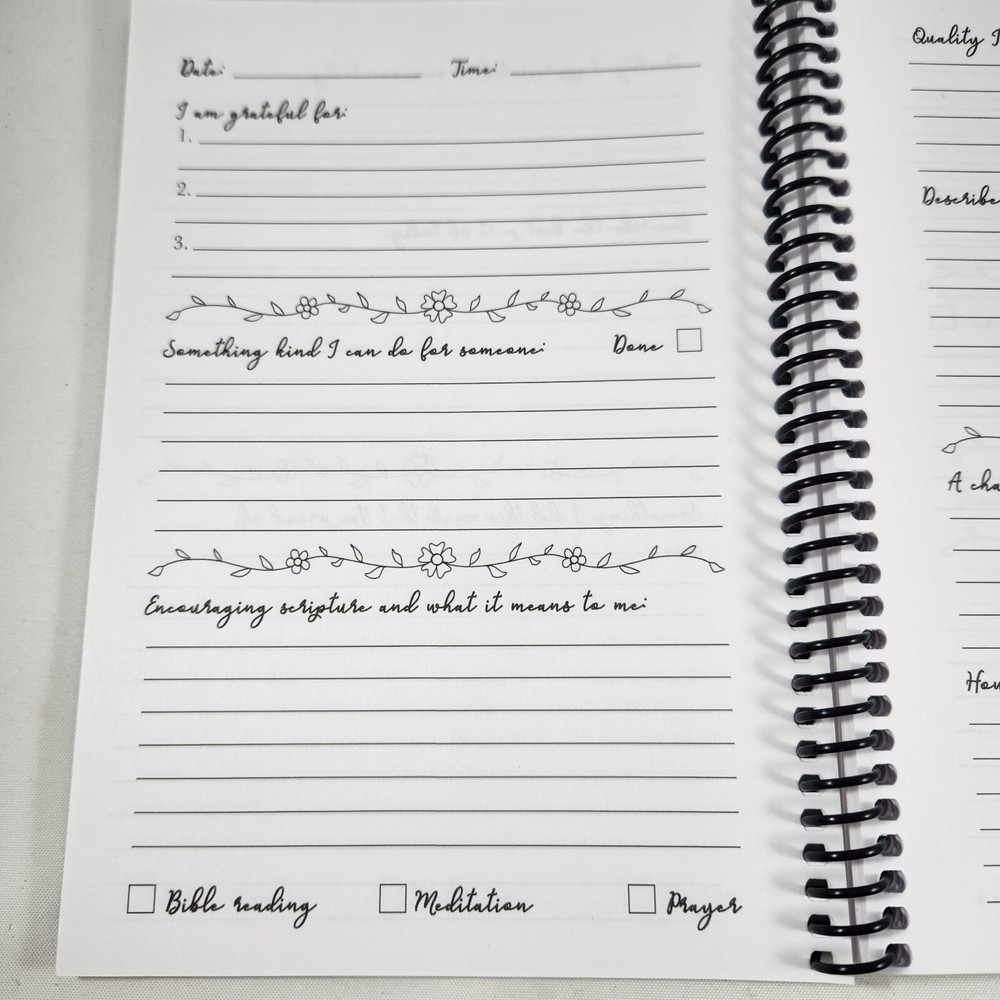 Date: Time:
I am grateful for:
1.
2.
3.
Something kind I can do for someone: Done
Encouraging scripture and what it means to me:
Bible reading Meditation Prayer
Quality
Describe
A